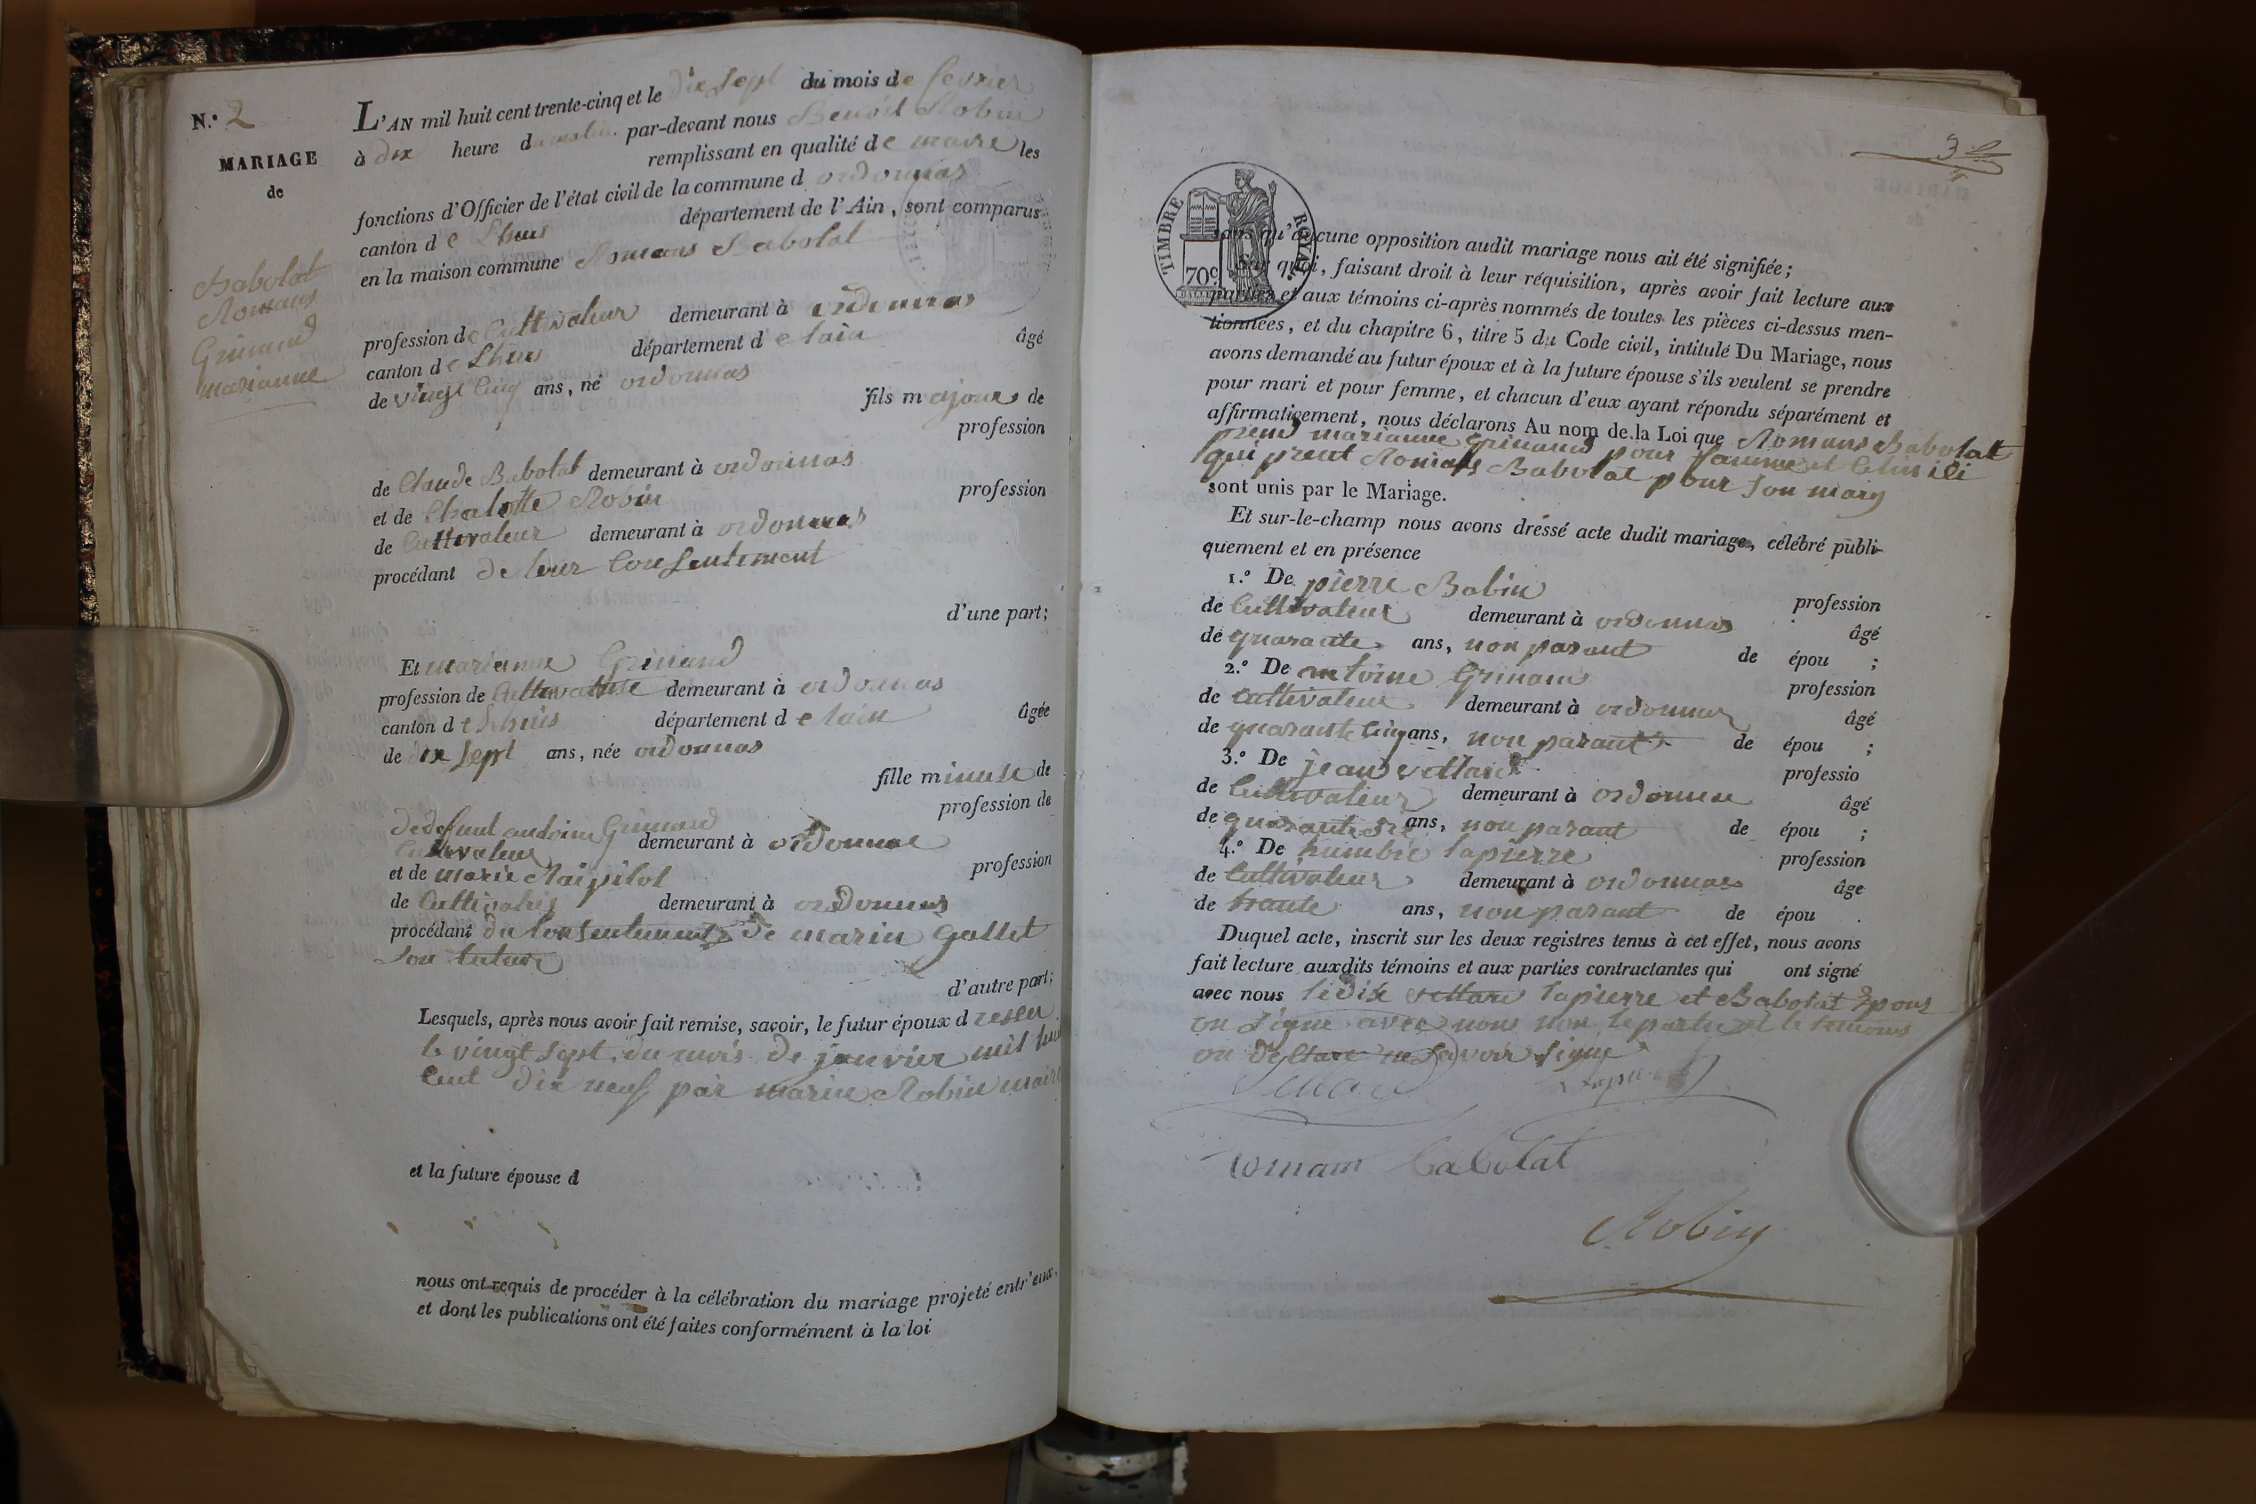 N.° 2
MARIAGE
de
Babolat
Romans
Grinand
marianne
L'AN mil huit cent trente-cinq et le dix sept du mois de fevrier
à dix heure du matin par-devant nous Benoit Robin
remplissant en qualité de maire les
fonctions d'Officier de l'état civil de la commune d ordonnas
canton de Lhuis département de l'Ain, sont comparus
en la maison commune Romans Babolat
profession de Cultivateur demeurant à ordonnas
canton de Lhuis département de lain âgé
de vingt Cinq ans, né ordonnas
fils majour de
profession
de Claude Babolat demeurant à ordonnas
et de Chalotte Robin profession
de Cultivateur demeurant à ordonnas
procédant de leur Consentement
d'une part;
Et marianne Grinand
profession de Cultivatrise demeurant à ordonnas
canton de Lhuis département de lain âgée
de dix sept ans, née ordonnas
fille minuse de
profession de
de defunt andoine Grinand
Cultivateur demeurant à ordonnas
et de marie profession
de demeurant à ordonnas
procédant du Consentement de marin gallet
son tuteur
d'autre part;
Lesquels, après nous avoir fait remise, savoir, le futur époux d
le vingt sept du mois de janvier mil huit
Cent dix neuf par marin Robin maire
et la future épouse d
nous ont requis de procéder à la célébration du mariage projeté entr'eux,
et dont les publications ont été faites conformément à la loi
3
TIMBRE ROYAL
70c
sans qu'aucune opposition audit mariage nous ait été signifiée;
Sur quoi, faisant droit à leur réquisition, après avoir fait lecture aux
parties et aux témoins ci-après nommés de toutes les pièces ci-dessus men-
tionnées, et du chapitre 6, titre 5 du Code civil, intitulé Du Mariage, nous
avons demandé au futur époux et à la future épouse s'ils veulent se prendre
pour mari et pour femme, et chacun d'eux ayant répondu séparément et
affirmativement, nous déclarons Au nom de la Loi que Romans Babolat
prend marianne Grinand pour famme et
qui prent Romans Babolat pour son mary
sont unis par le Mariage.
Et sur-le-champ nous avons dressé acte dudit mariage, célébré publi-
quement et en présence
1.° De pierre Babin profession
de Cultivateur demeurant à ordonnas âgé
de quarante ans, non parant de épou ;
2.° De antoine Grinand profession
de Cultivateur demeurant à ordonnas âgé
de quarante Cinq ans, non parant de épou ;
3.° De jean vettard professio
de Cultivateur demeurant à ordonnas âgé
de quarante six ans, non parant de épou ;
4.° De humbert lapierre profession
de Cultivateur demeurant à ordonnas âge
de trante ans, non parant de épou .
Duquel acte, inscrit sur les deux registres tenus à cet effet, nous avons
fait lecture auxdits témoins et aux parties contractantes qui ont signé
avec nous vettard lapierre et Babolat Epous
on signe avec nous non le partie et le temoins
on declare ne savoir signe
lapierre
romam babolat
Robin